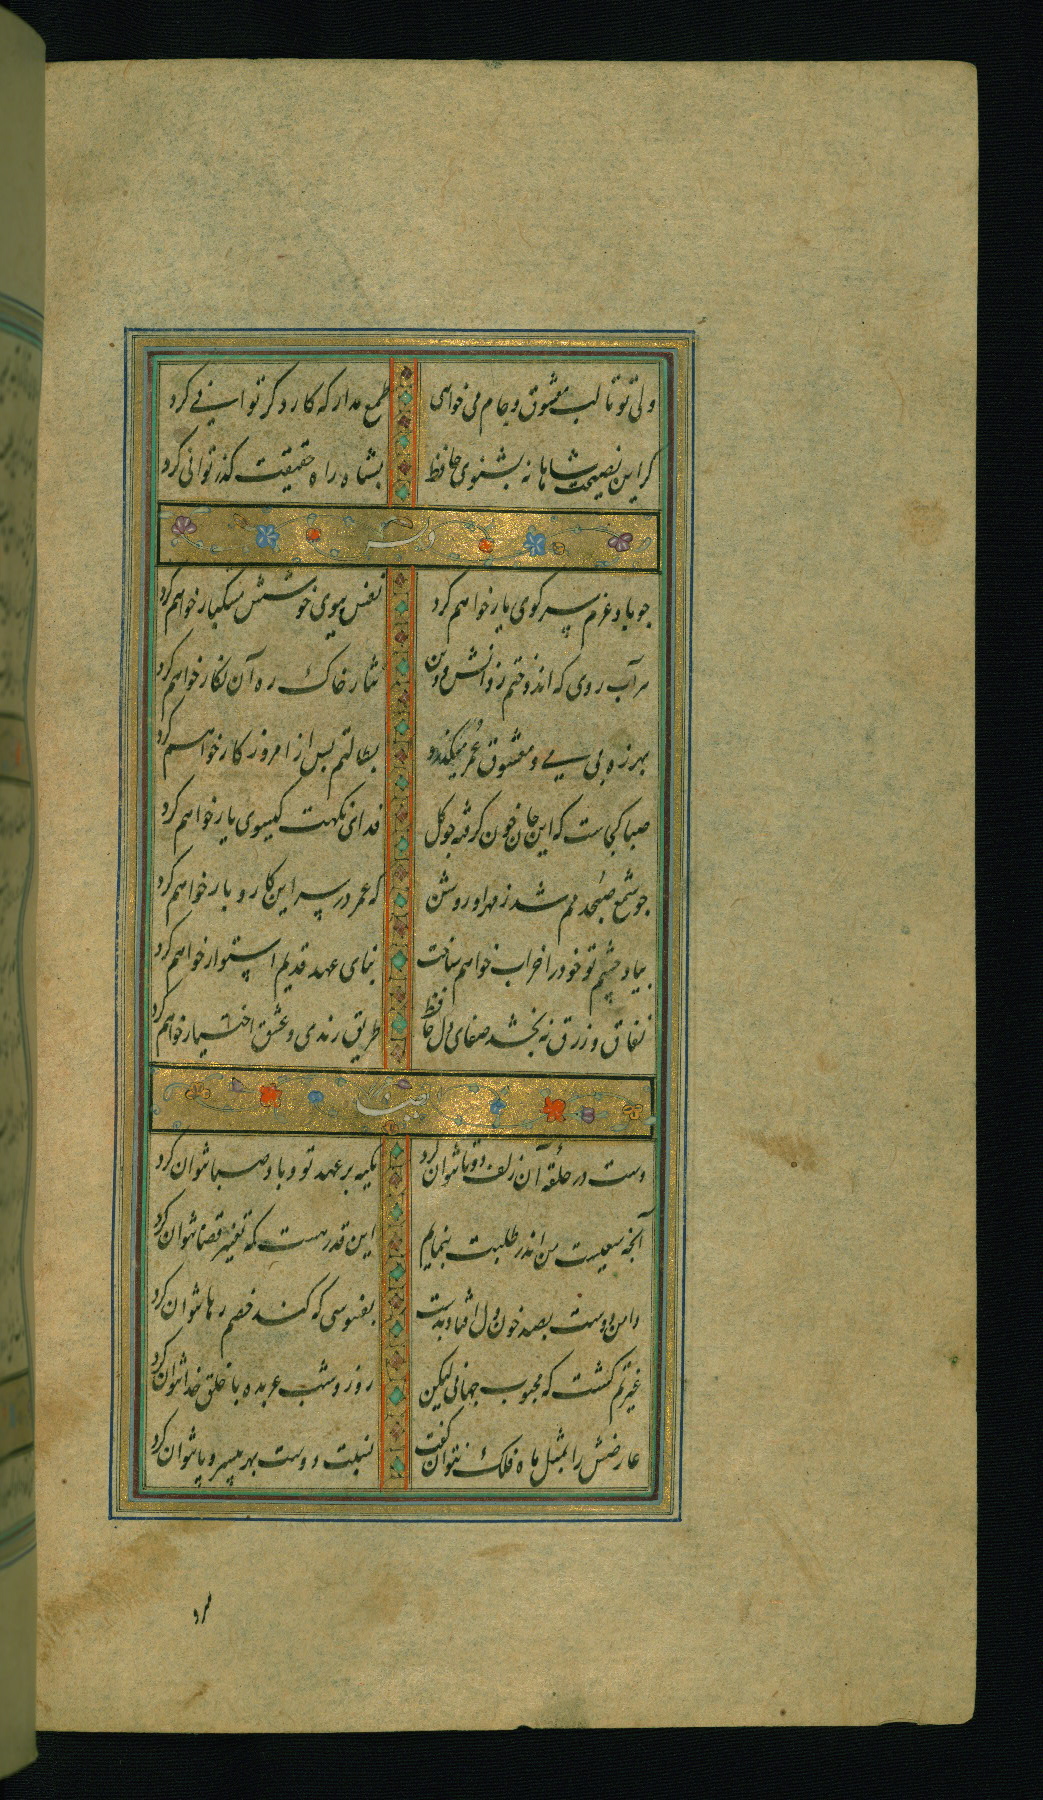 ولی تو تا لب معشوق و جام می خواهی طمع مدار که کار دگر توانی کرد
گر این نصیحت شاهانه بشنوی حافظ بشاه راه حقیقت گذر توانی کرد
وله
چو باد عزم سر کوی یار خواهم کرد نفس ببوی خوشش مشکبار خواهم کرد
هر آب روی که اندوختم ز دانش و دین نثار خاک ره آن نگار خواهم کرد
بهرزه بی می و معشوق عمر میگذرد بطالتم بس از امروز کار خواهم کرد
صبا کجاست که این جان خون گرفته چو گل فدای نکهت گیسوی یار خواهم کرد
چو شمع صبحدمم شد ز مهر او روشن که عمر در سر این کار و بار خواهم کرد
بیاد چشم تو خود را خراب خواهم ساخت بنای عهد قدیم استوار خواهم کرد
نفاق و زرق نه بخشد صفای دل حافظ طریق رندی و عشق اختیار خواهم کرد
دست در حلقه آن زلف دوتا نتوان کرد تکیه بر عهد تو و باد صبا نتوان کرد
آنچه سعیست من اندر طلبت بنمایم این قدر هست که تغییر قضا نتوان کرد
دامن دوست بصد خون دل افتاد بدست بفسوسی که کند خصم رها نتوان کرد
غیرتم گشت که محبوب جهانی لیکن روز و شب عربده با خلق خدا نتوان کرد
عارضش را بمثل ماه فلک نتوان گفت نسبت دوست بهر بی سر و پا نتوان کرد